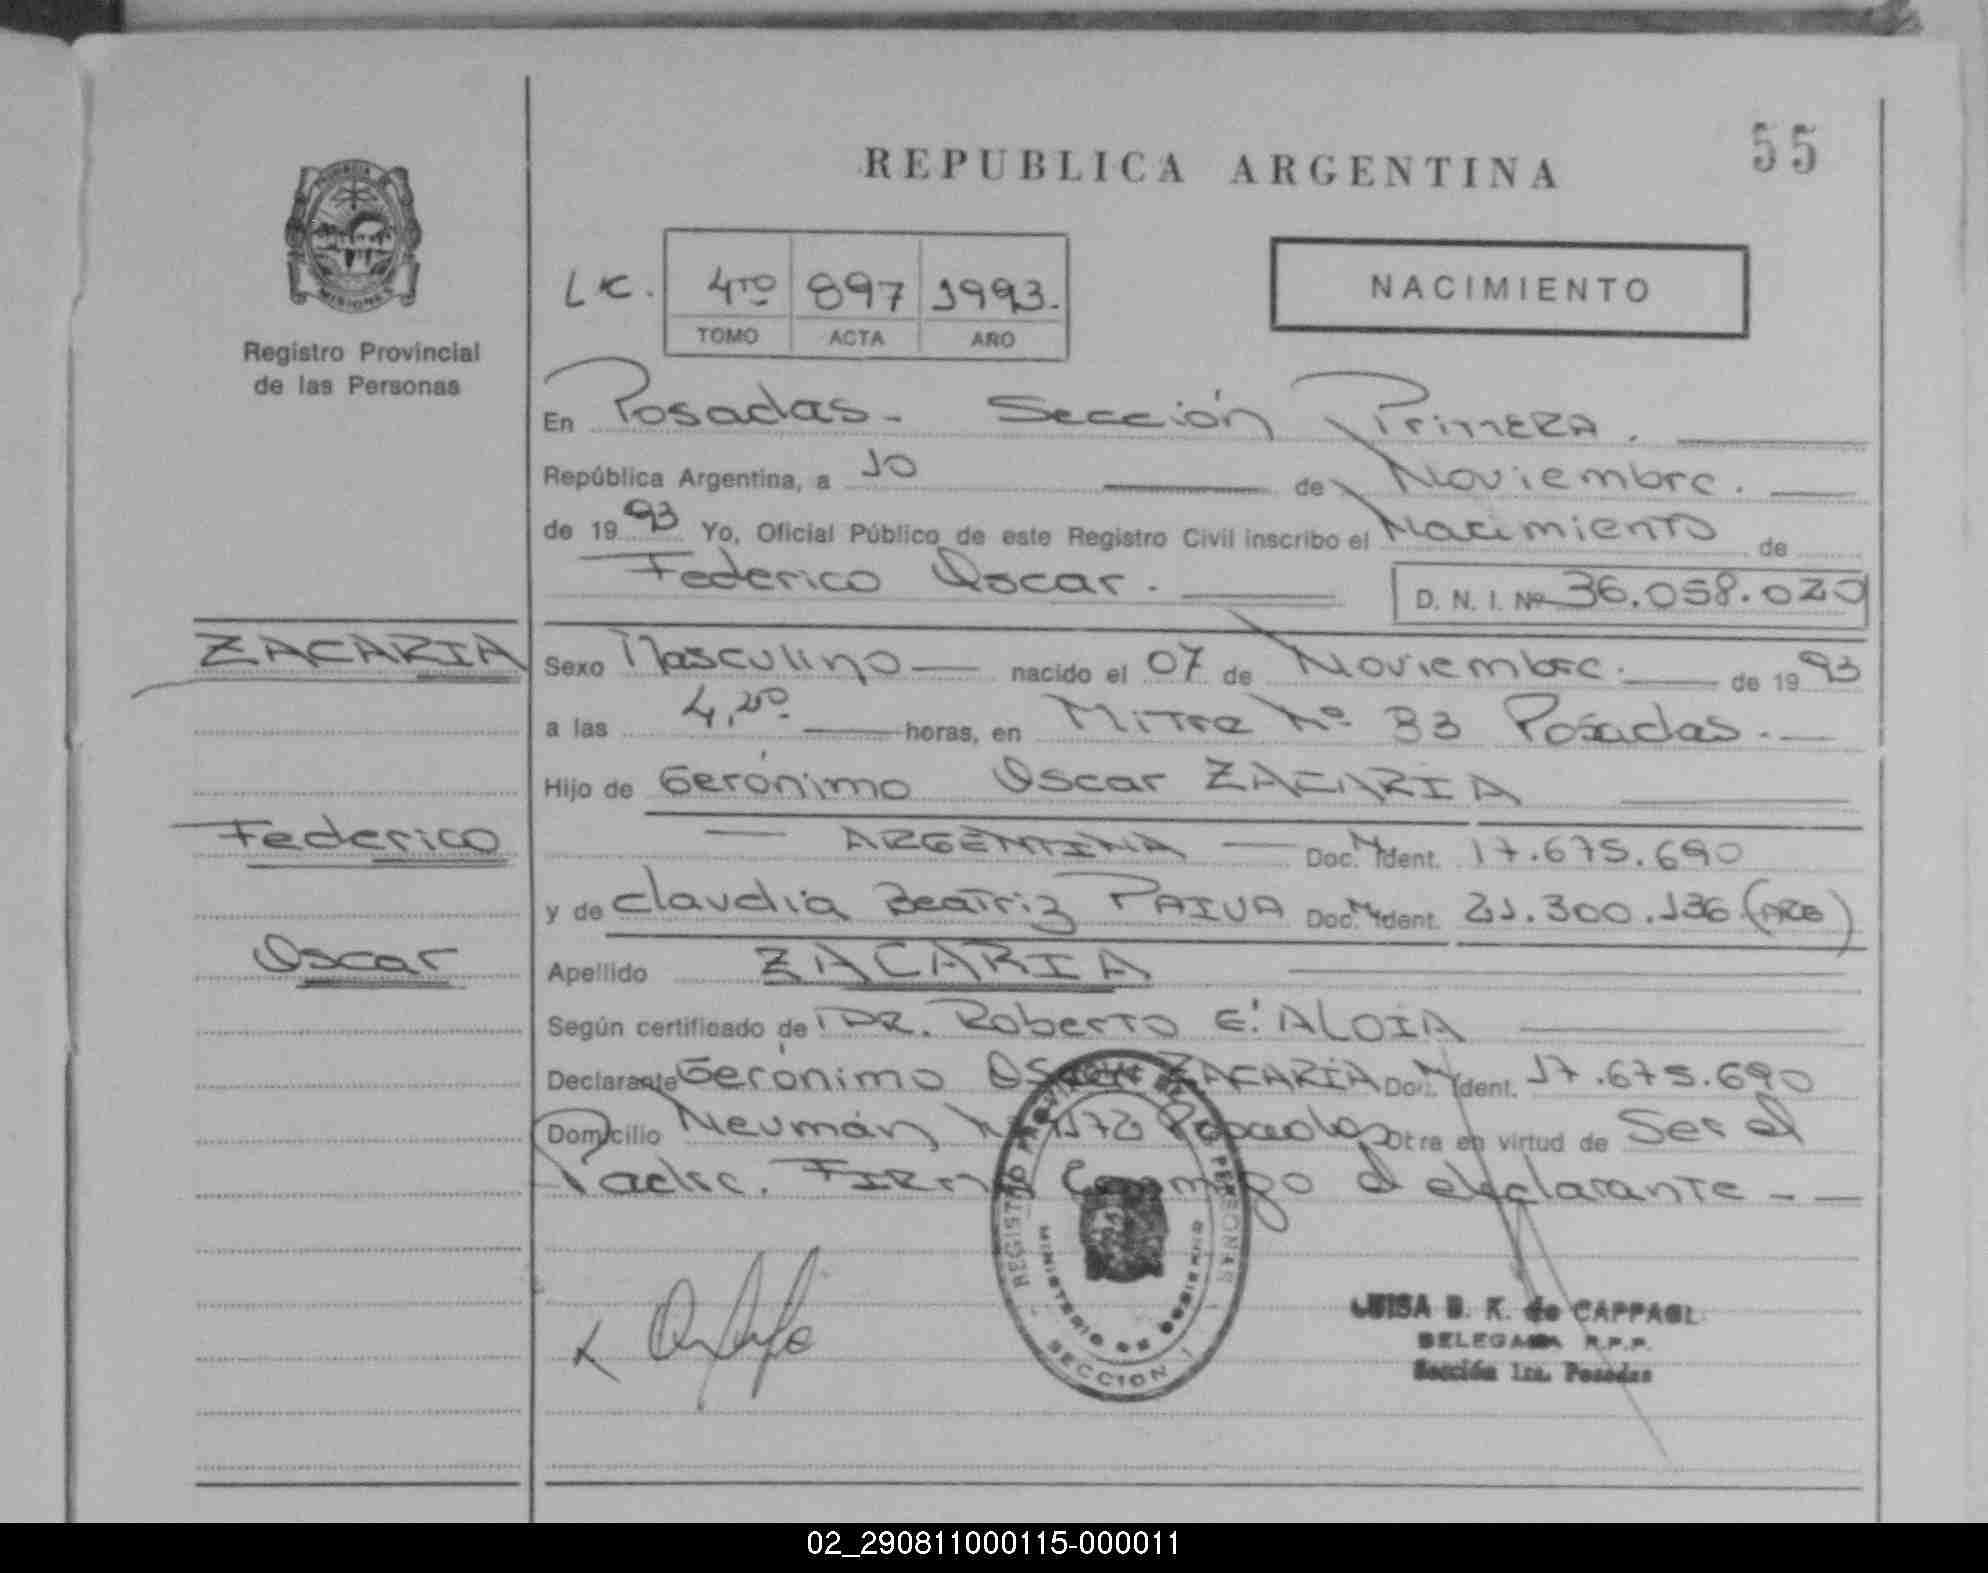 55
REPUBLICA ARGENTINA
MISIONES
Registro Provincial
de las Personas
4TO 897 1993.
TOMO ACTA AÑO
NACIMIENTO
En Posadas - Sección Primera.
República Argentina, a 10 de Noviembre.
de 1993 Yo, Oficial Público de este Registro Civil inscribo el Nacimiento de
Federico Oscar. D. N. I. Nº 36.058.020
ZACARIA
Sexo Masculino nacido el 07 de Noviembre. de 1993
a las 4,20. horas, en Mitre Nº 33 Posadas.
Hijo de Gerónimo Oscar ZACARIA
Federico
ARGENTINA Doc. Ident. 17.675.690
y de Claudia Beatriz PAIVA Doc. Ident. 21.300.136 (ARG)
Oscar
Apellido ZACARIA
Según certificado de DR. Roberto E. ALOIA
Declarante Gerónimo Oscar ZACARIA Doc. Ident. 17.675.690
Domicilio Neumán Posadas otra en virtud de Ser el
Padre. Firma Conmigo el declarante -
REGISTRO PROVINCIAL DE LAS PERSONAS
MINISTERIO DE GOBIERNO
SECCION 1
LUISA B. K. de CAPPAGLI
DELEGADA R.P.P.
Sección 1ra. Posadas
02_290811000115-000011